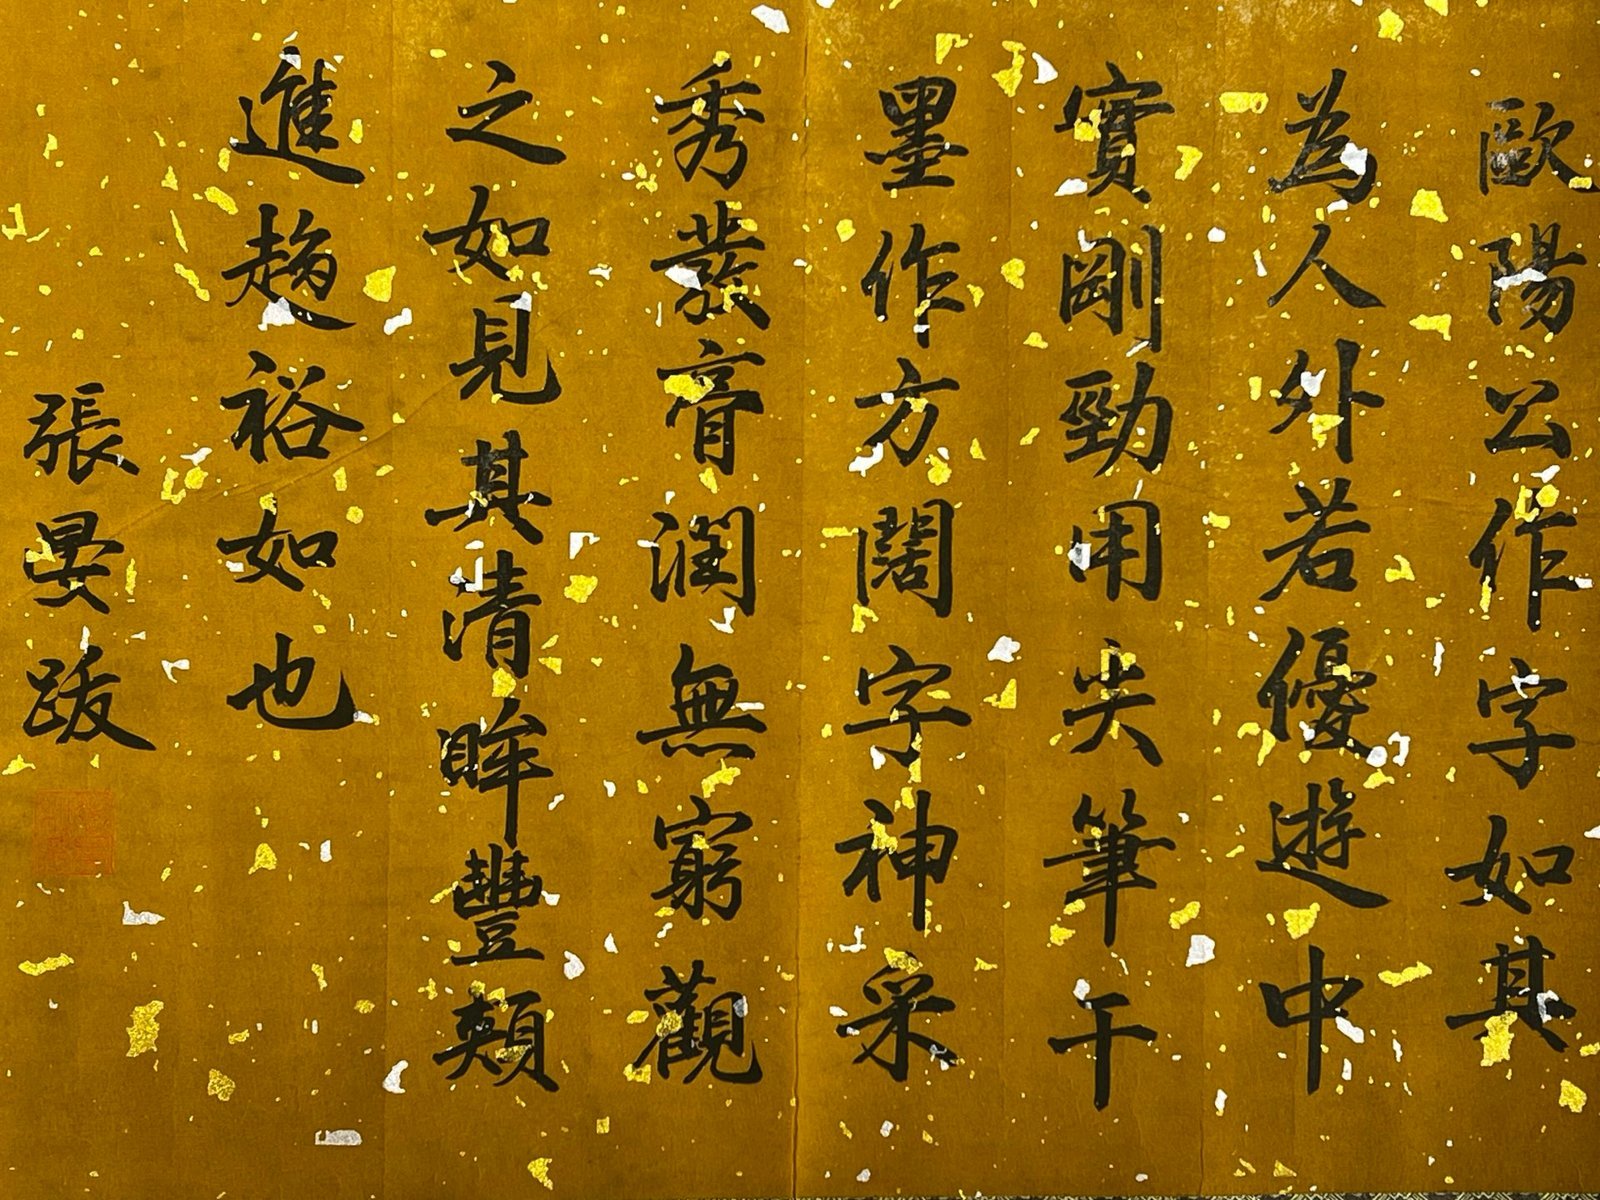 歐陽公作字如其
為人外若優遊中
實剛勁用尖筆干
墨作方闊字神采
秀發膏潤無窮觀
之如見其清眸豐頰
進趨裕如也
張晏跋